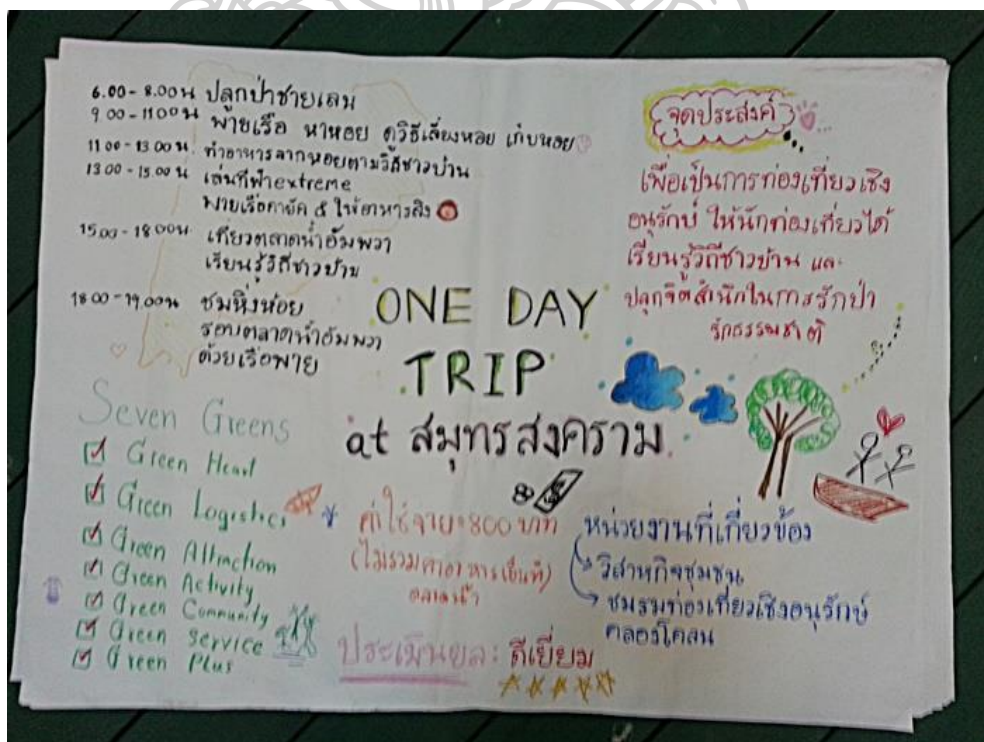 6.00 - 8.00 น ปลูกป่าชายเลน
9.00 - 11.00 น พายเรือ หาหอย ดูวิธีเลี้ยงหอย เก็บหอย
11.00 - 13.00 น. ทำอาหารจากหอยตามวิถีชาวบ้าน
13.00 - 15.00 น เล่นกีฬา extreme
พายเรือคายัค & ให้อาหารลิง
15.00 - 18.00 น. เที่ยวตลาดน้ำอัมพวา
เรียนรู้วิถีชาวบ้าน
18.00 - 19.00 น ชมหิ่งห้อย
รอบตลาดน้ำอัมพวา
ด้วยเรือพาย
จุดประสงค์
เพื่อเป็นการท่องเที่ยวเชิง
อนุรักษ์ ให้นักท่องเที่ยวได้
เรียนรู้วิถีชาวบ้าน และ
ปลูกจิตสำนึกในการรักป่า
รักธรรมชาติ
ONE DAY
TRIP
at สมุทรสงคราม
Seven Greens
Green Heart
Green Logistics
Green Attraction
Green Activity
Green Community
Green Service
Green Plus
ค่าใช้จ่าย = 800 บาท
(ไม่รวมค่าอาหารเย็นที่)
ตลาดน้ำ
หน่วยงานที่เกี่ยวข้อง
วิสาหกิจชุมชน
ชมรมท่องเที่ยวเชิงอนุรักษ์
คลองโคลน
ประเมินผล : ดีเยี่ยม